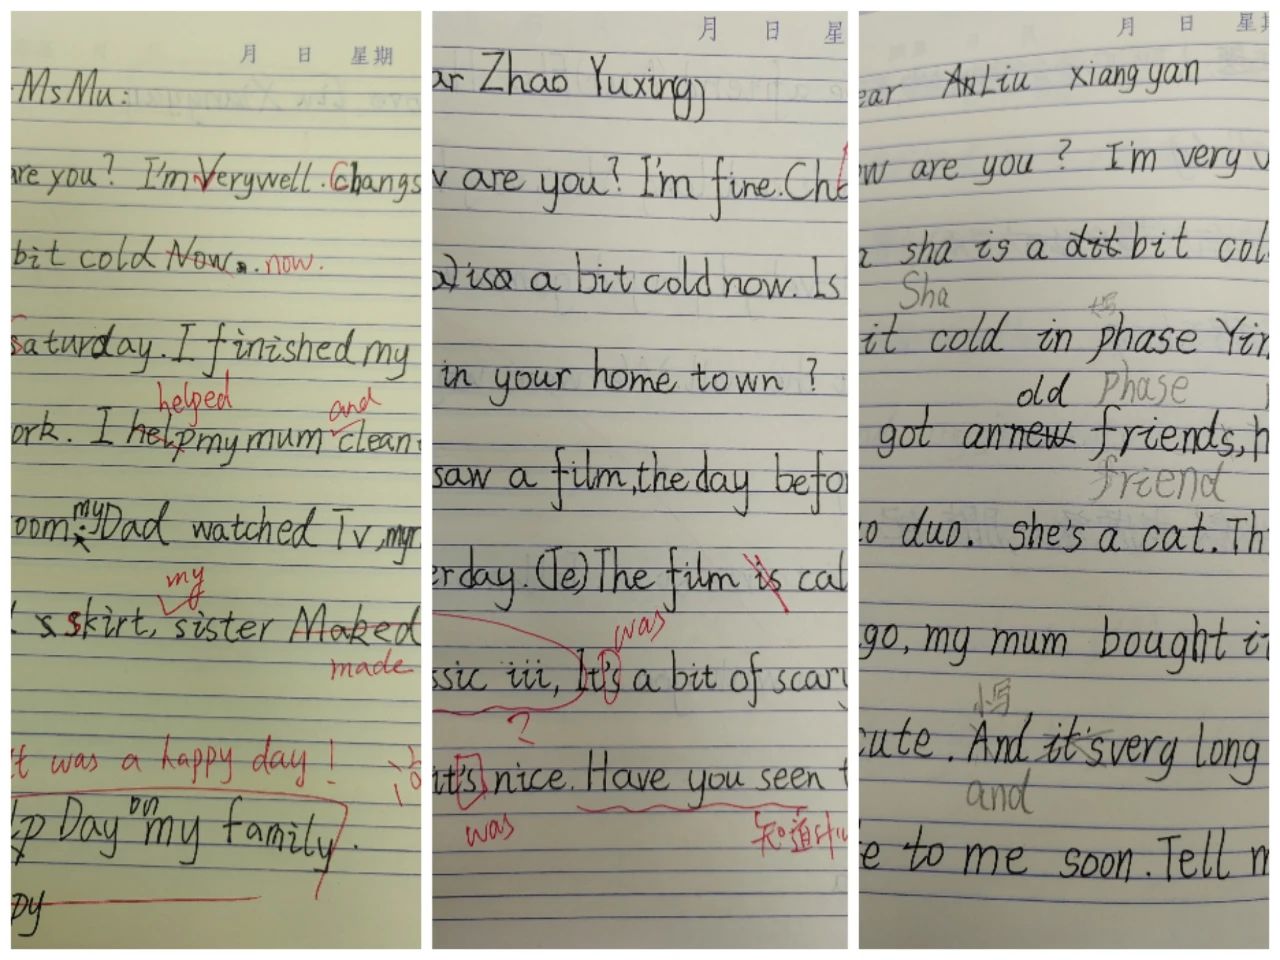 月 日 星期
MsMu:
are you? I'm Verywell. Changs
bit cold Now. now.
Saturday. I finished my
helped and
ork. I help my mum clean
oom. my Dad watched Tv, my
my
skirt, sister Maked
made
It was a happy day!
Day on my family.
py
月 日 星
ar Zhao Yuxing)
w are you? I'm fine. Cha
is a bit cold now. Is
in your home town?
saw a film, the day befo
erday. (Te) The film is cal
was
ssic iii, It's a bit of scary
?
it's nice. Have you seen t
was 知道
月 日 星期
ear AnLiu xiangyan
ow are you? I'm very v
sha is a dit bit col
Sha 大写
it cold in phase Yin
old Phase
got an new friends, h
friend
o duo. she's a cat. Th
go, my mum bought it
小写
cute. And it's very long
and
e to me soon. Tell m